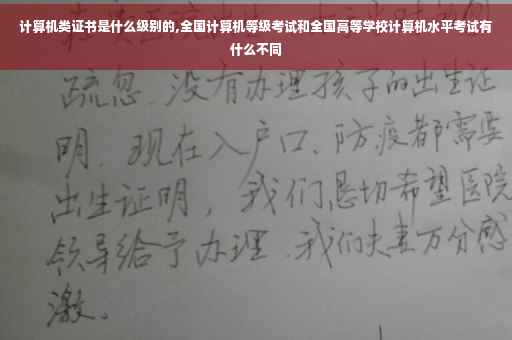 计算机类证书是什么级别的,全国计算机等级考试和全国高等学校计算机水平考试有
什么不同
疏忽、没有办理孩子的出生证
明、现在入户口、防疫都需要
出生证明，我们恳切希望医院
领导给予办理、我们夫妻万分感
激。